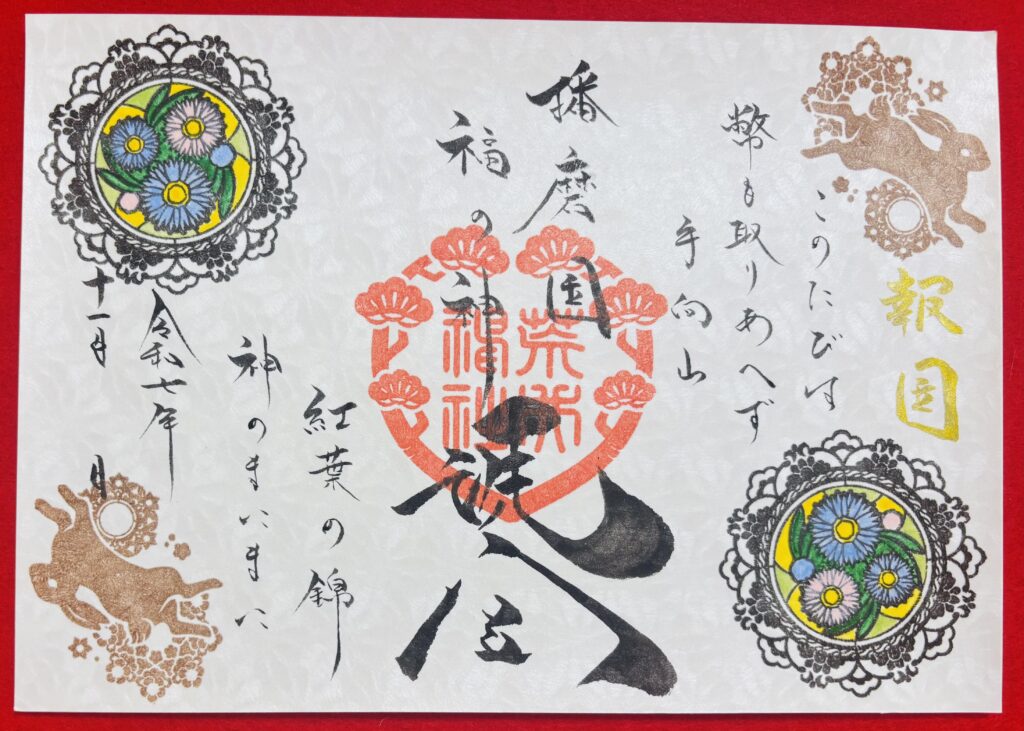 報国
このたびは
幣も取りあへず
手向山
播磨国
福の神
紅葉の錦
神のまにまに
令和七年
十一月 日